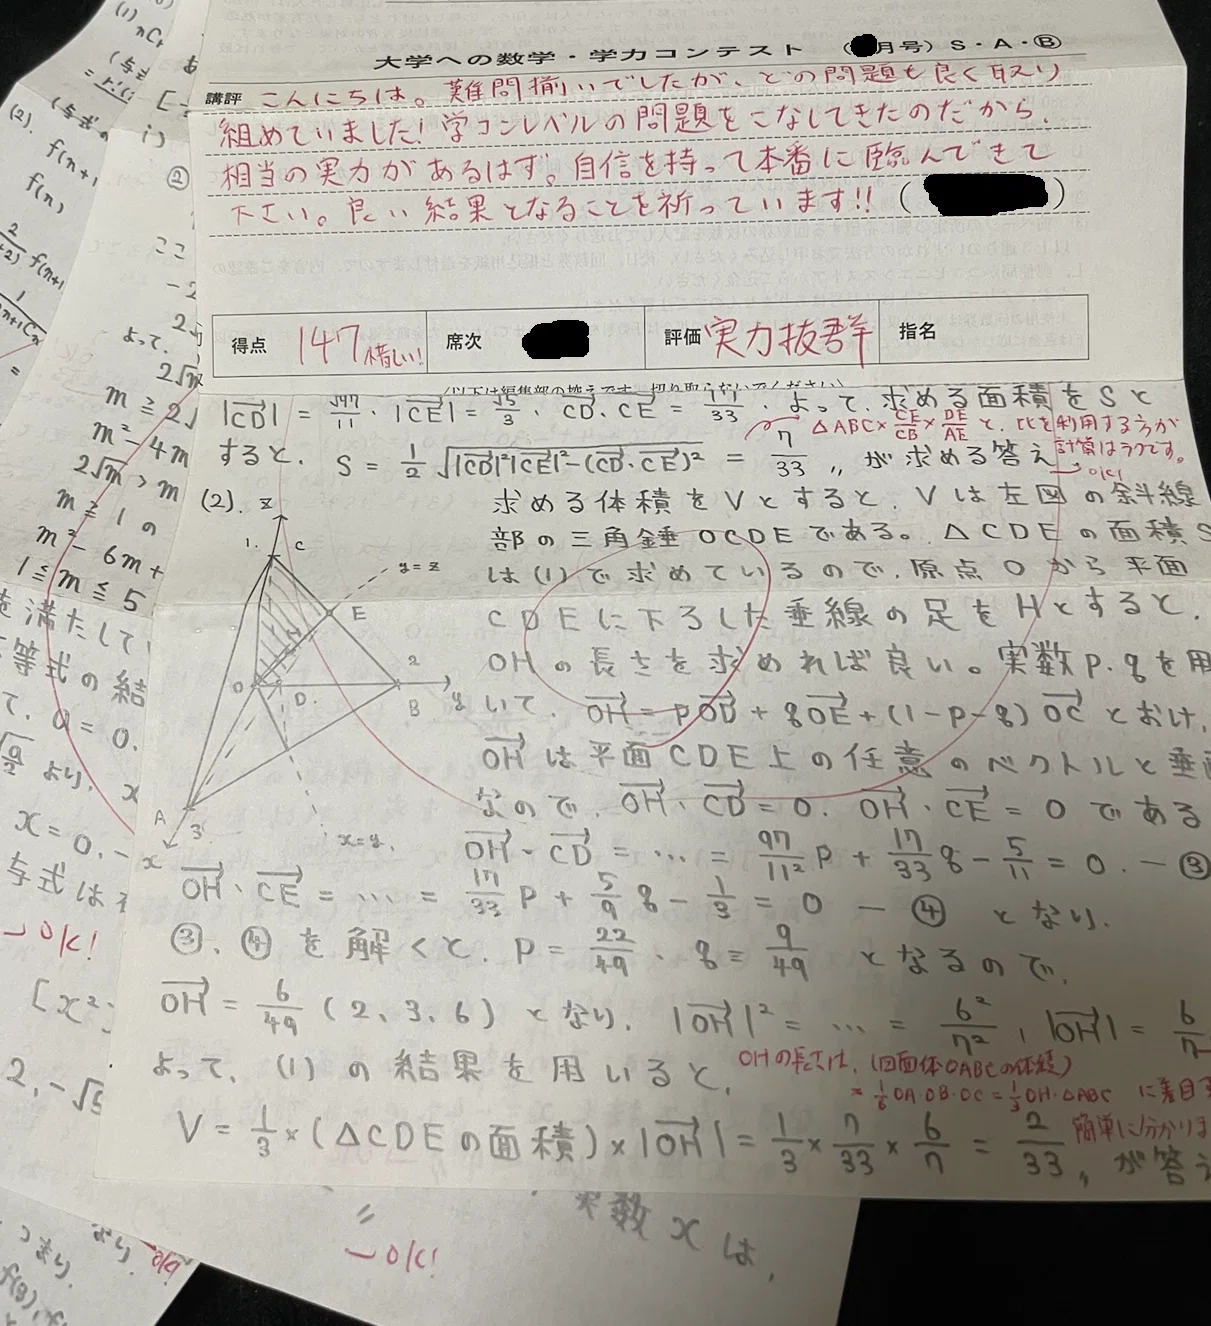 大学への数学・学力コンテスト （ 月号）S・A・Ⓑ
講評 こんにちは。難問揃いでしたが、どの問題も良く取り
組めていました！学コンレベルの問題をこなしてきたのだから、
相当の実力があるはず。自信を持って本番に臨んできて
下さい。良い結果となることを祈っています!! （ ）
得点 147 惜しい! 席次 評価 実力抜群 指名
(以下は編集部の控えです。切り取らないでください)
|CD→| = √97/11 . |CE→| = √5/3 . CD→・CE→ = 17/33 . よって、求める面積をSと
△ABC×CE/CB×DE/AE と、比を利用する方が
計算はラクです。
OK!
すると、S = 1/2 √|CD→|²|CE→|²-(CD→・CE→)² = 7/33 〃 が求める答え
(2). 求める体積をVとすると、Vは左図の斜線
部の三角錐OCDEである。△CDEの面積S
は(1)で求めているので、原点Oから平面
CDEに下ろした垂線の足をHとすると、
OHの長さを求めれば良い。実数p.qを用
いて、OH→ = pOD→ + qOE→ + (1-p-q)OC→ とおけ、
OH→は平面CDE上の任意のベクトルと垂直
なので、OH→・CD→ = 0. OH→・CE→ = 0 である
z
1.
C
y=z
E
H
O
D.
2
B
y
A
3
x
x=y.
OH→・CD→ = … = 97/11² p + 17/33 q - 5/11 = 0. ー③
OH→・CE→ = … = 17/33 p + 5/9 q - 1/3 = 0 ー④ となり、
③、④を解くと、p = 22/49 . q = 9/49 となるので、
OH→ = 6/49 (2、3、6) となり、|OH→|² = … = 6²/7² , |OH→| = 6/7
よって、(1)の結果を用いると、
OHの長さは、(四面体OABCの体積)
= 1/6 OA・OB・OC = 1/3 OH・△ABC に着目
簡単に分かりま
V = 1/3 ×(△CDEの面積)×|OH→| = 1/3 × 7/33 × 6/7 = 2/33 〃 が答え
(1)
nCr
(与式
(2).
f(n+1
f(n)
[
i)
②
ここ
-2
よって、
2√m
m ≧ 2
m² - 4m
2√m > m
m ≧ 1 の
m² - 6m +
1 ≦ m ≦ 5
を満たして
等式の結
て、a = 0.
より、x
x = 0. -
与式は
OK!
[x²
2, -√5
実数xは、
OK!